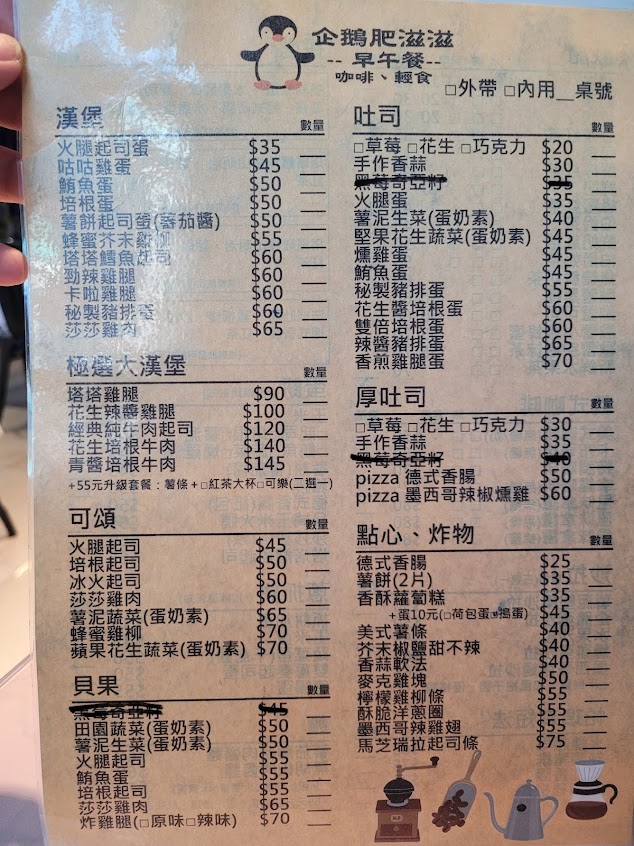 企鵝肥滋滋
-- 早午餐--
咖啡、輕食
□外帶 □內用__桌號
漢堡 數量
火腿起司蛋 $35
咕咕雞蛋 $45
鮪魚蛋 $50
培根蛋 $50
薯餅起司蛋(蕃茄醬) $50
蜂蜜芥末雞柳 $55
塔塔鱈魚起司 $60
勁辣雞腿 $60
卡啦雞腿 $60
秘製豬排蛋 $60
莎莎雞肉 $65
極選大漢堡 數量
塔塔雞腿 $90
花生辣醬雞腿 $100
經典純牛肉起司 $120
花生培根牛肉 $140
青醬培根牛肉 $145
+55元升級套餐：薯條＋□紅茶大杯□可樂(二選一)
可頌 數量
火腿起司 $45
培根起司 $50
冰火起司 $50
莎莎雞肉 $60
薯泥蔬菜(蛋奶素) $65
蜂蜜雞柳 $70
蘋果花生蔬菜(蛋奶素) $70
貝果 數量
黑莓奇亞籽 $45
田園蔬菜(蛋奶素) $50
薯泥生菜(蛋奶素) $50
火腿起司 $55
鮪魚蛋 $55
培根起司 $55
莎莎雞肉 $65
炸雞腿(□原味□辣味) $70
吐司 數量
□草莓 □花生 □巧克力 $20
手作香蒜 $30
黑莓奇亞籽 $35
火腿蛋 $35
薯泥生菜(蛋奶素) $40
堅果花生蔬菜(蛋奶素) $45
燻雞蛋 $45
鮪魚蛋 $45
秘製豬排蛋 $55
花生醬培根蛋 $60
雙倍培根蛋 $60
辣醬豬排蛋 $65
香煎雞腿蛋 $70
厚吐司 數量
□草莓 □花生 □巧克力 $30
手作香蒜 $35
黑莓奇亞籽 $40
pizza 德式香腸 $50
pizza 墨西哥辣椒燻雞 $60
點心、炸物 數量
德式香腸 $25
薯餅(2片) $35
香酥蘿蔔糕 $35
+蛋10元(□荷包蛋□搗蛋) $45
美式薯條 $40
芥末椒鹽甜不辣 $40
香蒜軟法 $40
麥克雞塊 $50
檸檬雞柳條 $55
酥脆洋蔥圈 $55
墨西哥辣雞翅 $55
馬芝瑞拉起司條 $75